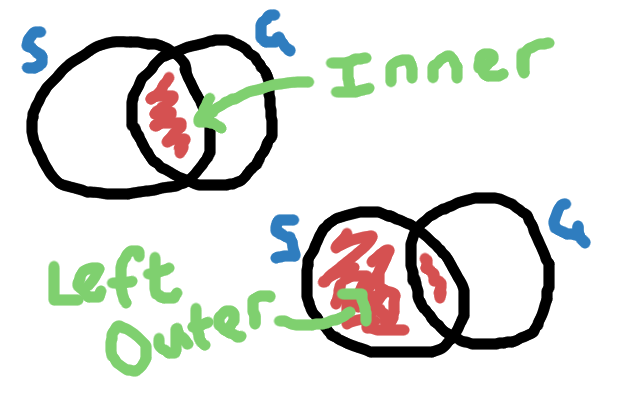 S G
Inner
S G
Left
Outer